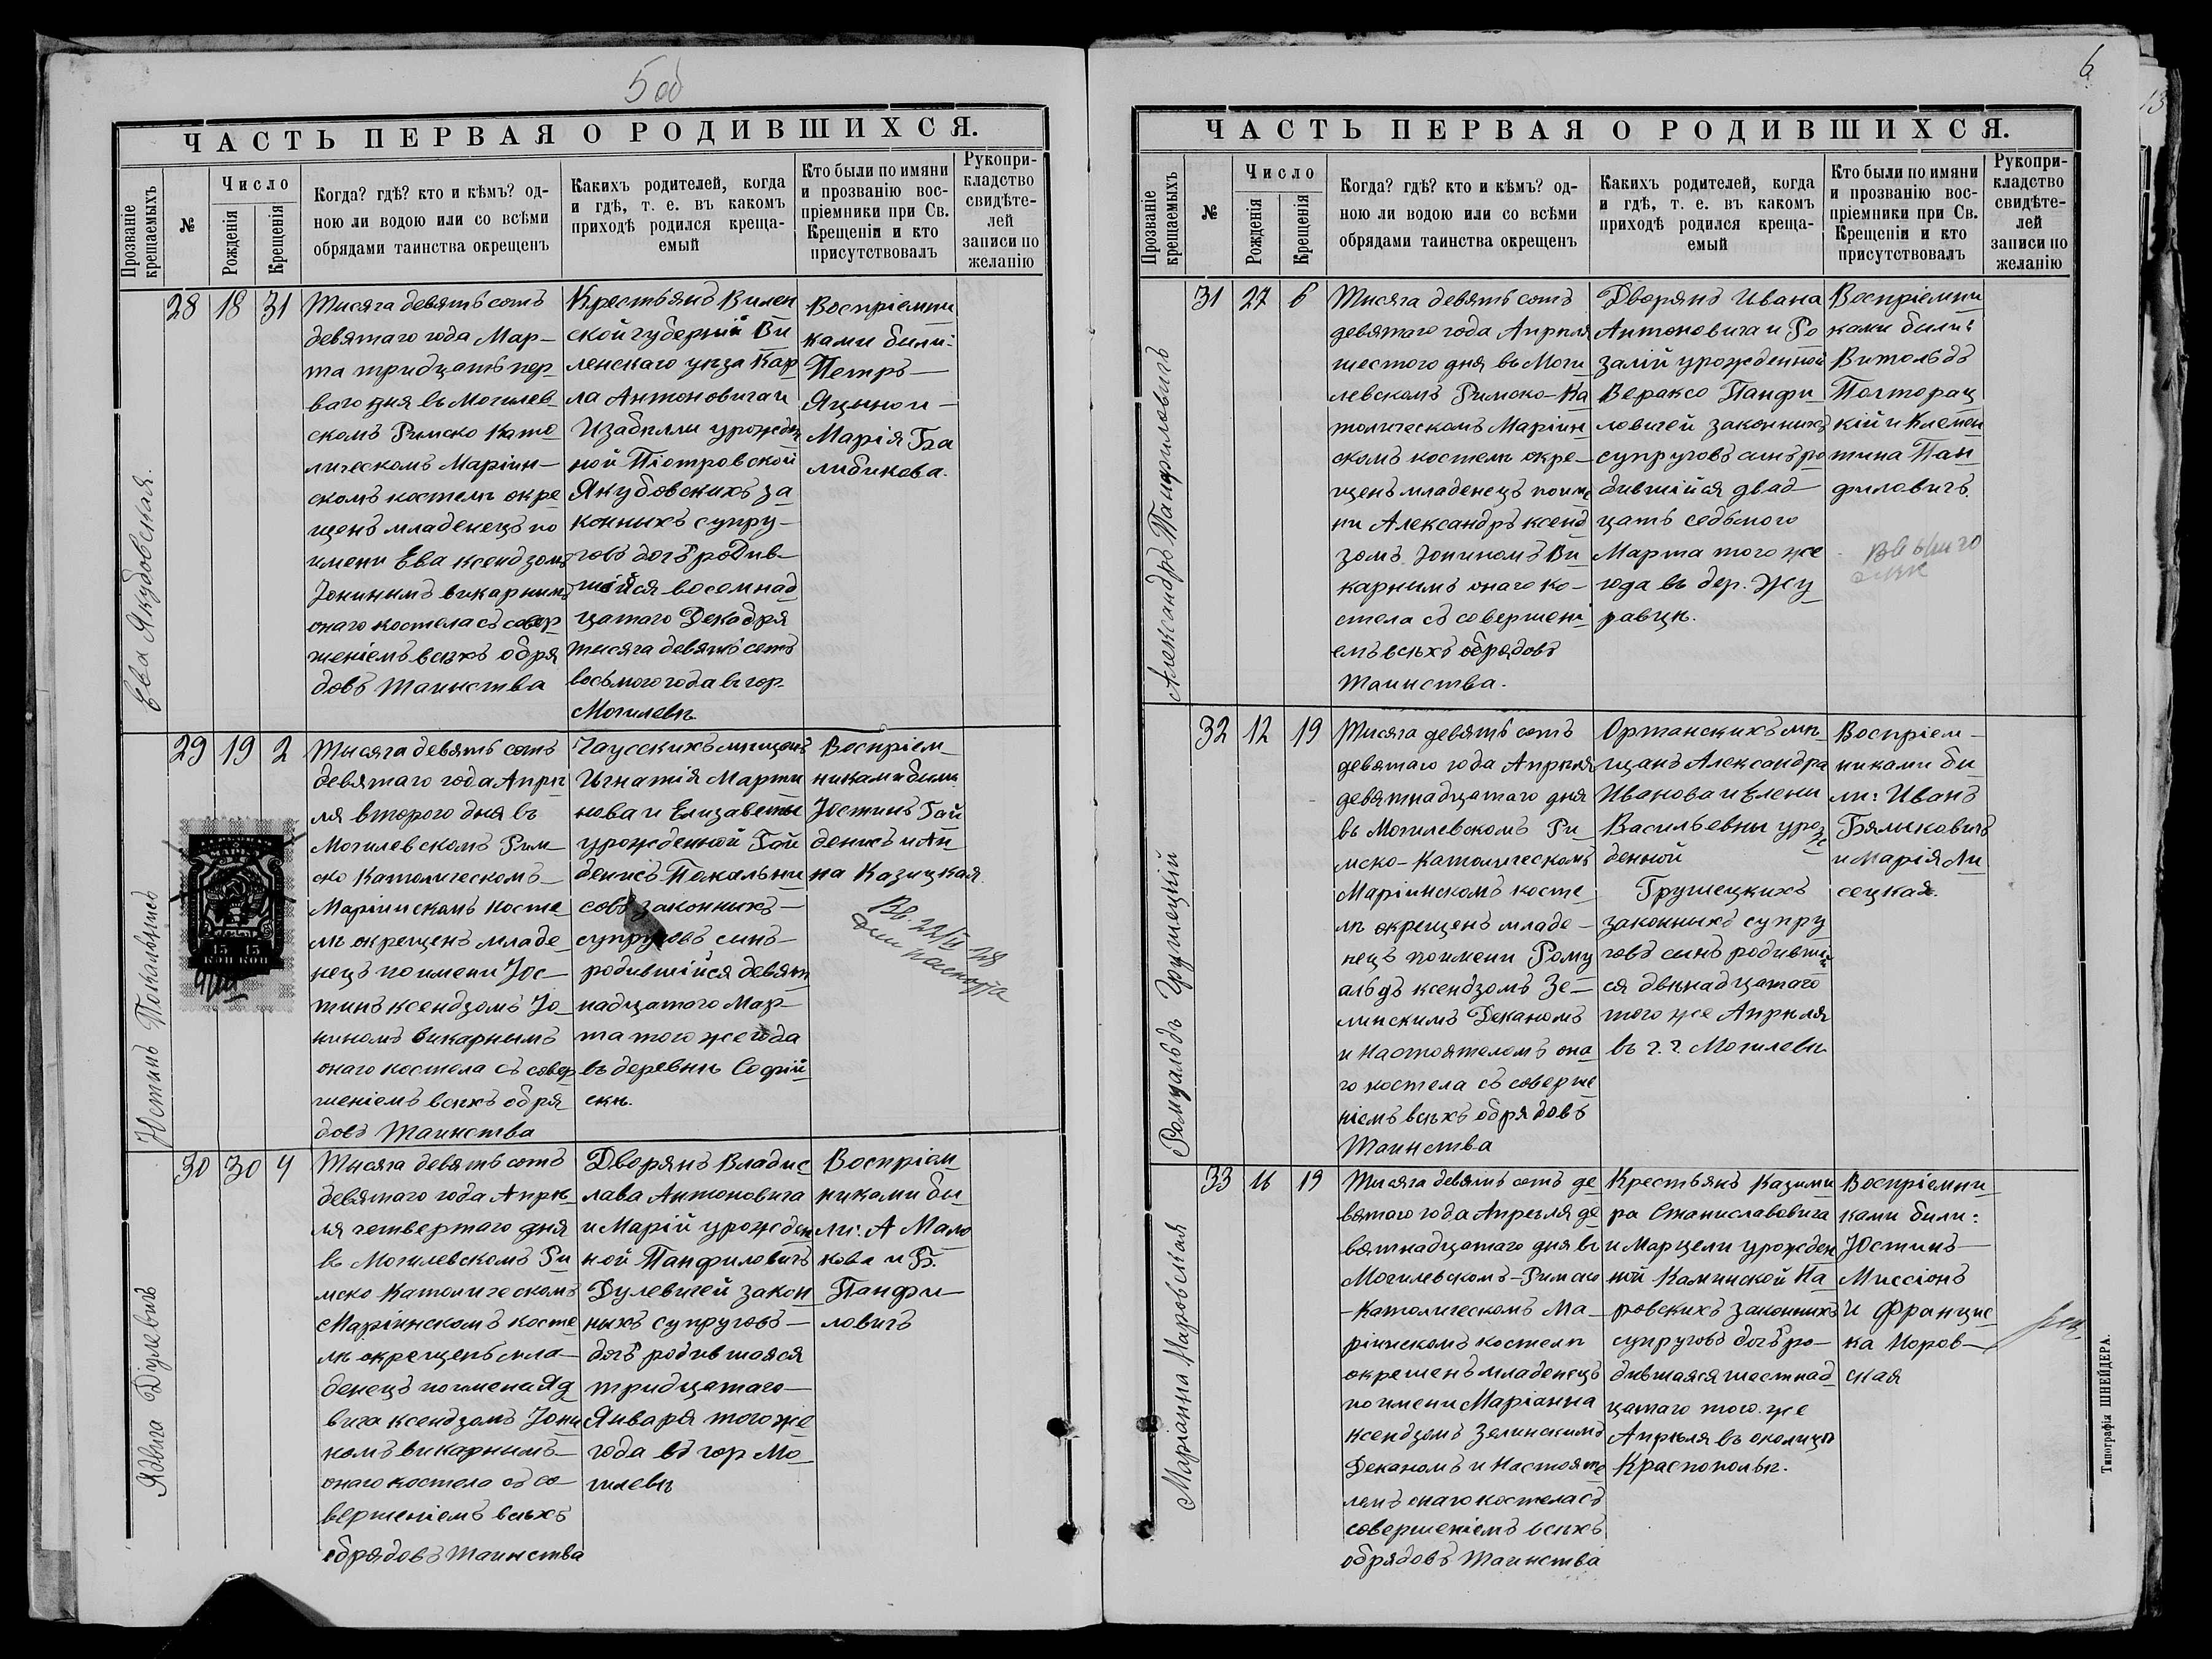 5 об
ЧАСТЬ ПЕРВАЯ О РОДИВШИХСЯ.
Прозваніе крещаемыхъ
№
Число
Рожденія
Крещенія
Когда? гдѣ? кто и кѣмъ? од-
ною ли водою или со всѣми
обрядами таинства окрещенъ
Какихъ родителей, когда
и гдѣ, т. е. въ какомъ
приходѣ родился креща-
емый
Кто были по имяни
и прозванію вос-
пріемники при Св.
Крещеніи и кто
присутствовалъ
Рукопри-
кладство
свидѣте-
лей
записи по
желанію
Ева Якубовская.
28 18 31
Тисяга девять сотъ
девятаго года Мар-
та тридцать пер-
ваго дня въ Могилев-
скомъ Римско Като-
лическомъ Маріин-
скомъ костелѣ окре
щенъ младенецъ по
имени Ева ксендзомъ
Іонинымъ викарнымъ
онаго костела съ совер
шеніемъ всѣхъ обря
довъ Таинства
Крестьянъ Вилен
ской губерніи Ви
ленскаго уѣзда Кар
ла Антоновича и
Изабеллы урожден
ной Піотровской
Якубовскихъ за
конныхъ супру-
говъ дочъ родив-
шійся восемнад
цатаго Декабря
тисяга девять сотъ
восьмого года въ гор.
Могилевѣ.
Воспріемни
ками били:
Петръ
Яцыно и
Марія Ба
либикова.
Юстинъ Покальнисъ
29 19 2
Тысяга девять сотъ
девятаго года Апрѣ
ля второго дня въ
Могилевскомъ Рим-
ско Католическомъ
Маріинскомъ косте
лѣ окрещенъ младе
нецъ по имени Юс-
тинъ ксендзомъ Іо
ниномъ викарнымъ
онаго костела съ совер
шеніемъ всѣхъ обря
довъ Таинства
Чаусскихъ мѣщанъ
Игнатія Марти
нова и Елизаветы
урожденной Гай
денисъ Покальни
совъ законныхъ
супруговъ синъ
родившійся девят
надцатого Мар-
та того же года
въ деревнѣ Софій
скѣ.
Воспріем
никами были
Юстинъ Гай
денисъ и Ан
на Казицкая.
15 15
КОП КОП
Ядвига Дулевичъ
30 30 4
Тысяга девять сотъ
девятаго года Апрѣ-
ля четвертаго дня
въ Могилевскомъ Ри
мско Католическомъ
Маріинскомъ косте
лѣ окрещенъ мла-
денецъ по имени Яд
вига ксендзомъ Іони
номъ викарнымъ
онаго костела съ со-
вершеніемъ всѣхъ
обрядовъ Таинства
Дворянъ Владис
лава Антоновича
и Маріи урожден
ной Панфиловичъ
Дулевичей закон
ныхъ супруговъ
дочъ родившаяся
тридцатаго
Января того же
года въ гор Мо
гилевѣ
Воспріем
никами бы
ли: А Мало
кова и Б.
Панфи-
ловичъ
6
ЧАСТЬ ПЕРВАЯ О РОДИВШИХСЯ.
Прозваніе крещаемыхъ
№
Число
Рожденія
Крещенія
Когда? гдѣ? кто и кѣмъ? од-
ною ли водою или со всѣми
обрядами таинства окрещенъ
Какихъ родителей, когда
и гдѣ, т. е. въ какомъ
приходѣ родился креща-
емый
Кто были по имяни
и прозванію вос-
пріемники при Св.
Крещеніи и кто
присутствовалъ
Рукопри-
кладство
свидѣте-
лей
записи по
желанію
Александръ Панфиловичъ
31 27 6
Тисяга девять сотъ
девятаго года Апрѣля
шестого дня въ Моги
левскомъ Римско-Ка
толическомъ Маріин
скомъ костелѣ окре-
щенъ младенецъ по име
ни Александръ ксенд
зомъ Іониномъ Ви
карнымъ онаго ко-
стела съ совершені
емъ всѣхъ обрядовъ
Таинства.
Дворянъ Ивана
Антоновича и Ро
заліи урожденной
Вераксо Панфи
ловичей законныхъ
супруговъ синъ ро
дившійся двад
цать седьмого
Марта того же
года въ дер. Жу
равцѣ.
Воспріемни
ками били:
Витольдъ
Полторац
кій и Клемен
тина Пан
филовичъ.
Ромуальдъ Грушецкій
32 12 19
Тисяга девять сотъ
девятаго года Апрѣля
девятнадцатаго дня
въ Могилевскомъ Ри
мско-Католическомъ
Маріинскомъ косте
лѣ окрещенъ младе-
нецъ по имени Рому
альдъ ксендзомъ Зе-
линскимъ Деканомъ
и Настоятелемъ она
го костела съ соверше
ніемъ всѣхъ обрядовъ
Таинства
Оршанскихъ мѣ
щанъ Александра
Иванова и Елени
Васильевны урож
денной
Грушецкихъ
законныхъ супру
говъ синъ родивші
ся двѣнадцатаго
того же Апрѣля
въ г. г. Могилевѣ
Воспріем-
никами би
ли: Иванъ
Бялыковичъ
и Марія Ли
сецкая.
Маріанна Маровская
33 16 19
Тисяга девять сотъ де
вятого года Апрѣля де
вятнадцатаго дня въ
Могилевскомъ-Римско
-Католическомъ Ма-
ріинскомъ костелѣ
окрещенъ младенецъ
по имени Маріанна
ксендзомъ Зелинскимъ
Деканомъ и Настояте
лемъ онаго костела съ
совершеніемъ всѣхъ
обрядовъ Таинства
Крестьянъ Казими
ра Станиславовича
и Марцели урожден
ной Каминской Ма
ровскихъ законныхъ
супруговъ дочъ ро-
дившаяся шестнад
цатаго того же
Апрѣля въ околицѣ
Краснопольѣ.
Воспріемни
ками били:
Юстинъ
Миссіонъ
и Францис
ка Норов-
ская
Типографія ШНЕЙДЕРА.